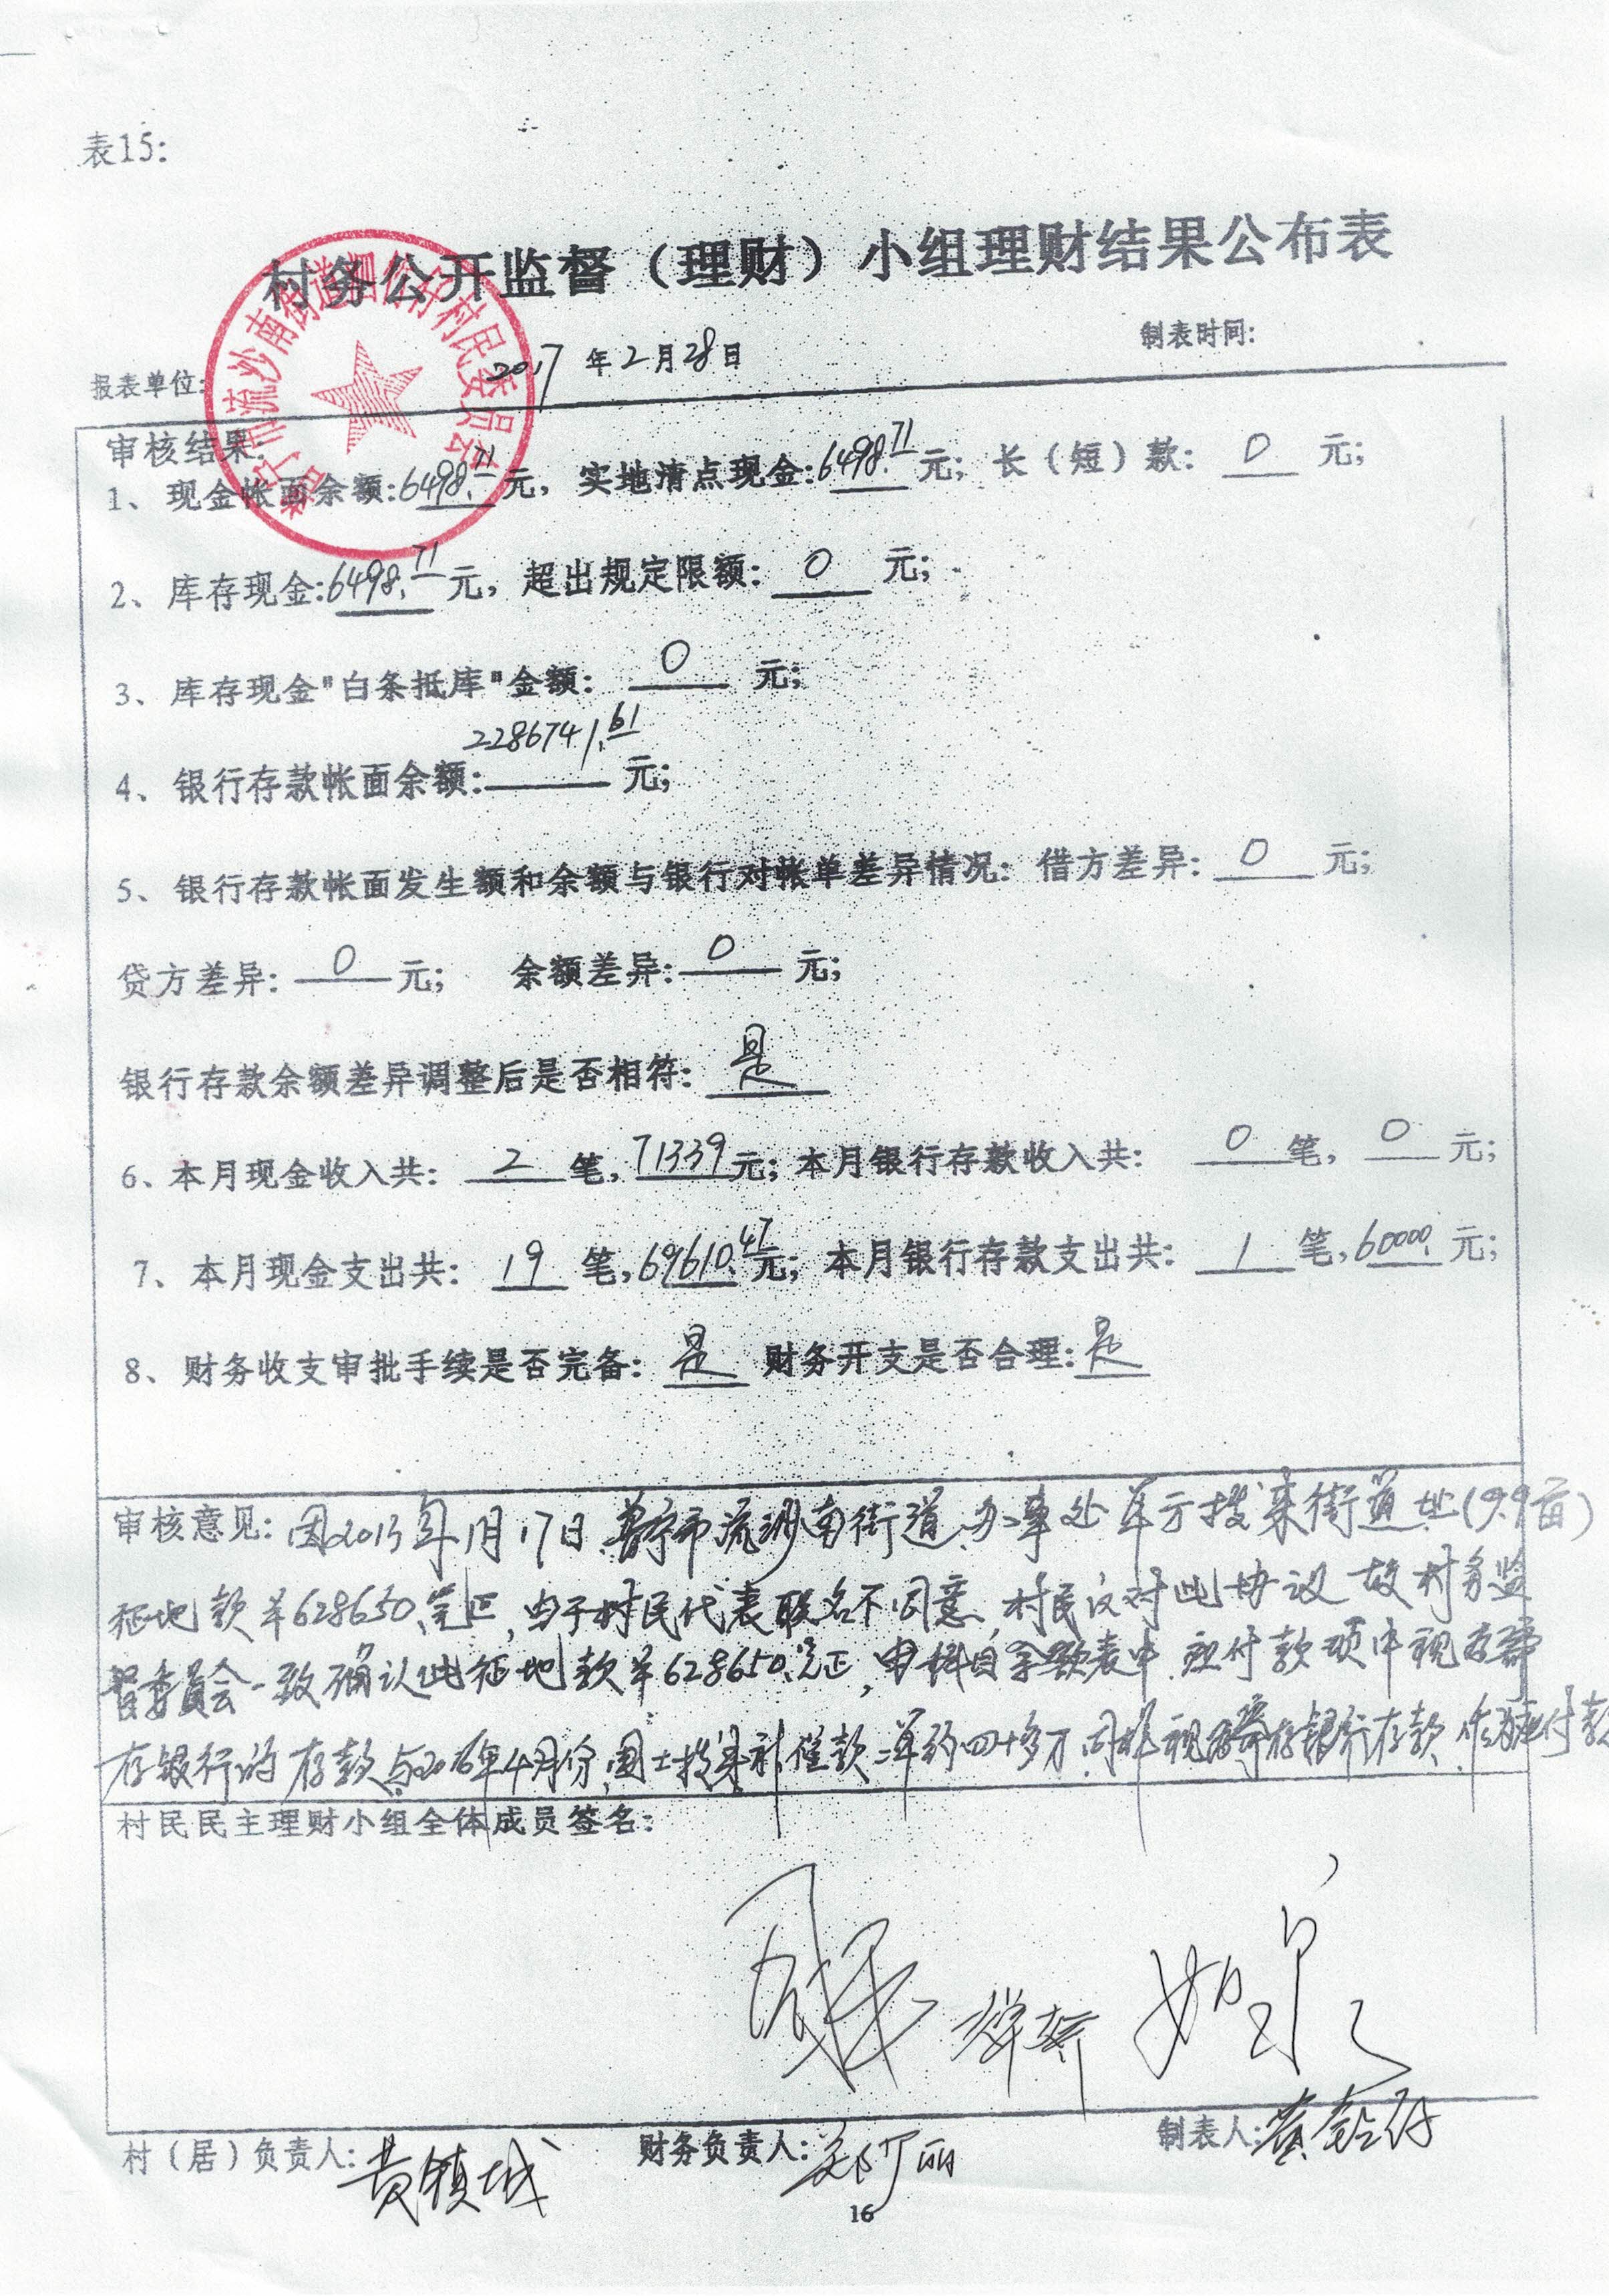 表15:
村务公开监督（理财）小组理财结果公布表
制表时间:
报表单位: 2017 年 2 月 28 日
普宁市流沙南街道 村村民委员会
审核结果:
1、现金帐面余额:6498.71元，实地清点现金:6498.71元；长（短）款: 0 元；
2、库存现金:6498.71元，超出规定限额: 0 元；
3、库存现金"白条抵库"金额: 0 元；
4、银行存款帐面余额:2286741.61元；
5、银行存款帐面发生额和余额与银行对帐单差异情况: 借方差异: 0 元；
贷方差异: 0 元； 余额差异: 0 元；
银行存款余额差异调整后是否相符: 是
6、本月现金收入共: 2 笔, 71339元；本月银行存款收入共: 0 笔, 0 元；
7、本月现金支出共: 19 笔,69610.47元；本月银行存款支出共: 1 笔,60000.元；
8、财务收支审批手续是否完备: 是 财务开支是否合理:是
审核意见: 因2013年1月17日，普宁市流沙南街道办事处单方拨来街道址(9.9亩)
征地款￥628650元正，由于村民代表联名不同意，村民反对此协议 故村务监
督委员会一致确认此征地款￥628650元正，由科目余额表中 应付款项中视为寄
存银行的存款与2016年4月份，国土拨来 款 单约四十多万，同样视为寄存银行存款 作为应付款
村民民主理财小组全体成员签名:
村（居）负责人:黄镇城 财务负责人:郑丽 制表人:黄
16